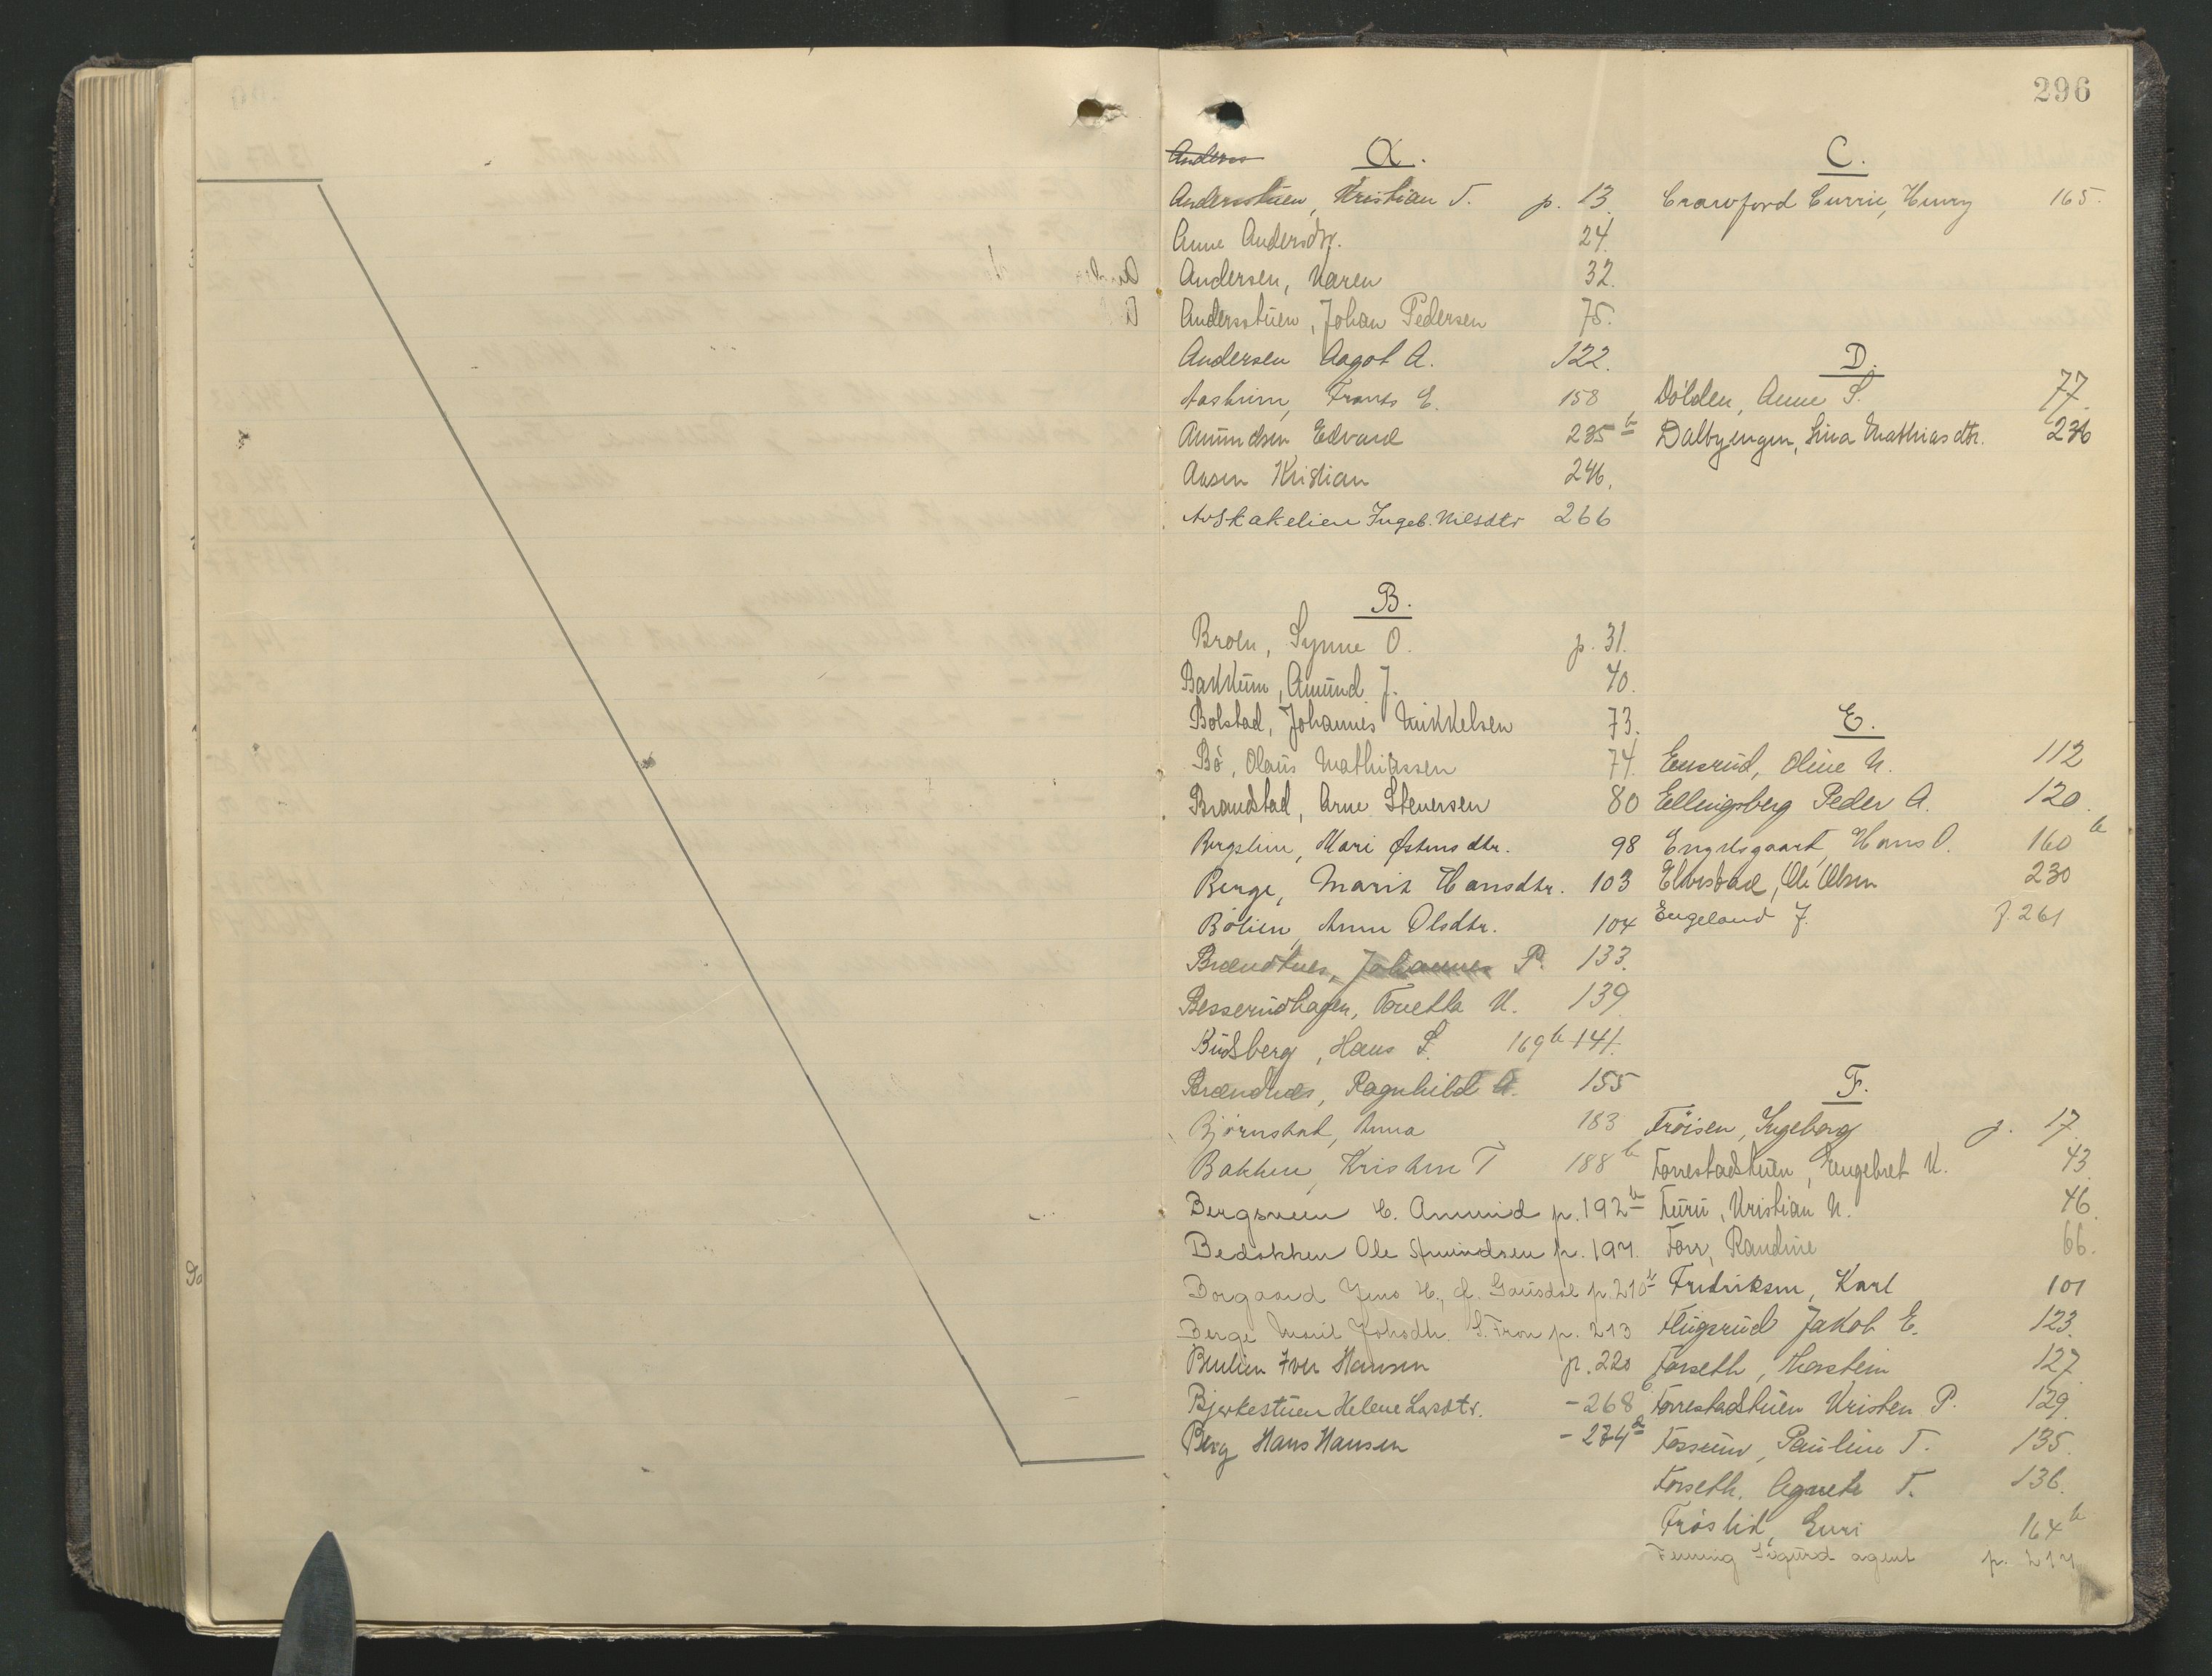 296
Anders
A.
Andersstuen, Kristian T. p. 13.
Anne Andersdtr. 24.
Andersen, Karen 32.
Andersstuen, Johan Pedersen 75.
Andersen Aagot A. 122.
Aasheim, Frants E. 158
Amundsen Edvard 235 b
Aasen Kristian 246.
Avskakelien Ingeb. Nilsdtr 266
B.
Broen, Synne O. p. 31.
Bakkum, Amund J. 40.
Bolstad, Johannes Mikkelsen 73.
Bö, Olaus Mathiassen 74.
Brandstad, Arne Stenersen 80
Bergsheim, Mari Østensdtr. 98
Berge, Marit Hansdtr. 103
Bölien, Anne Olsdtr. 104
Brændnes, Johannes P. 133.
Besserudhagen, Tonetta K. 139
Budsberg, Hans S. 169 b 141.
Brændnes, Ragnhild A. 155
Björnstad, Anna 183
Bakken, Kristen T 188 b
Bergsveen E. Amund p. 192 b
Bedokken Ole Amundsen p. 194.
Borgaard Jens H., Ö. Gausdal p. 210 b
Berge Marit Johsdtr. S. Fron p. 213
Brulien Iver Hansen p. 220
Bjerkestuen Helene Larsdtr. - 268 b
Berg Hans Hansen - 274 a
C.
Crawford Currie, Henry 165.
D.
Dölden, Anne S. 77.
Dalbyengen, Lina Mathiasdtr. 236
E.
Ensrud, Oline N. 112
Ellingsberg Peder A. 120.
Engelsgaard, Hans O. 160 b
Elvestad, Ole Olsen 230
Engeland J. p. 261
F.
Fröisen, Ingeborg p. 17.
Forrestadstuen, Engebret K. 43.
Furu, Kristian N. 46.
Forr, Randine 66.
Fredriksen, Karl 101
Flugsrud Jakob E. 123.
Forseth, Thorstein 127.
Forrestadstuen Kristen P. 129.
Fossum, Pauline T. 135.
Forseth, Agnete T. 136.
Fröslid, Guri 164 b
Fenning Sigurd agent p. 214